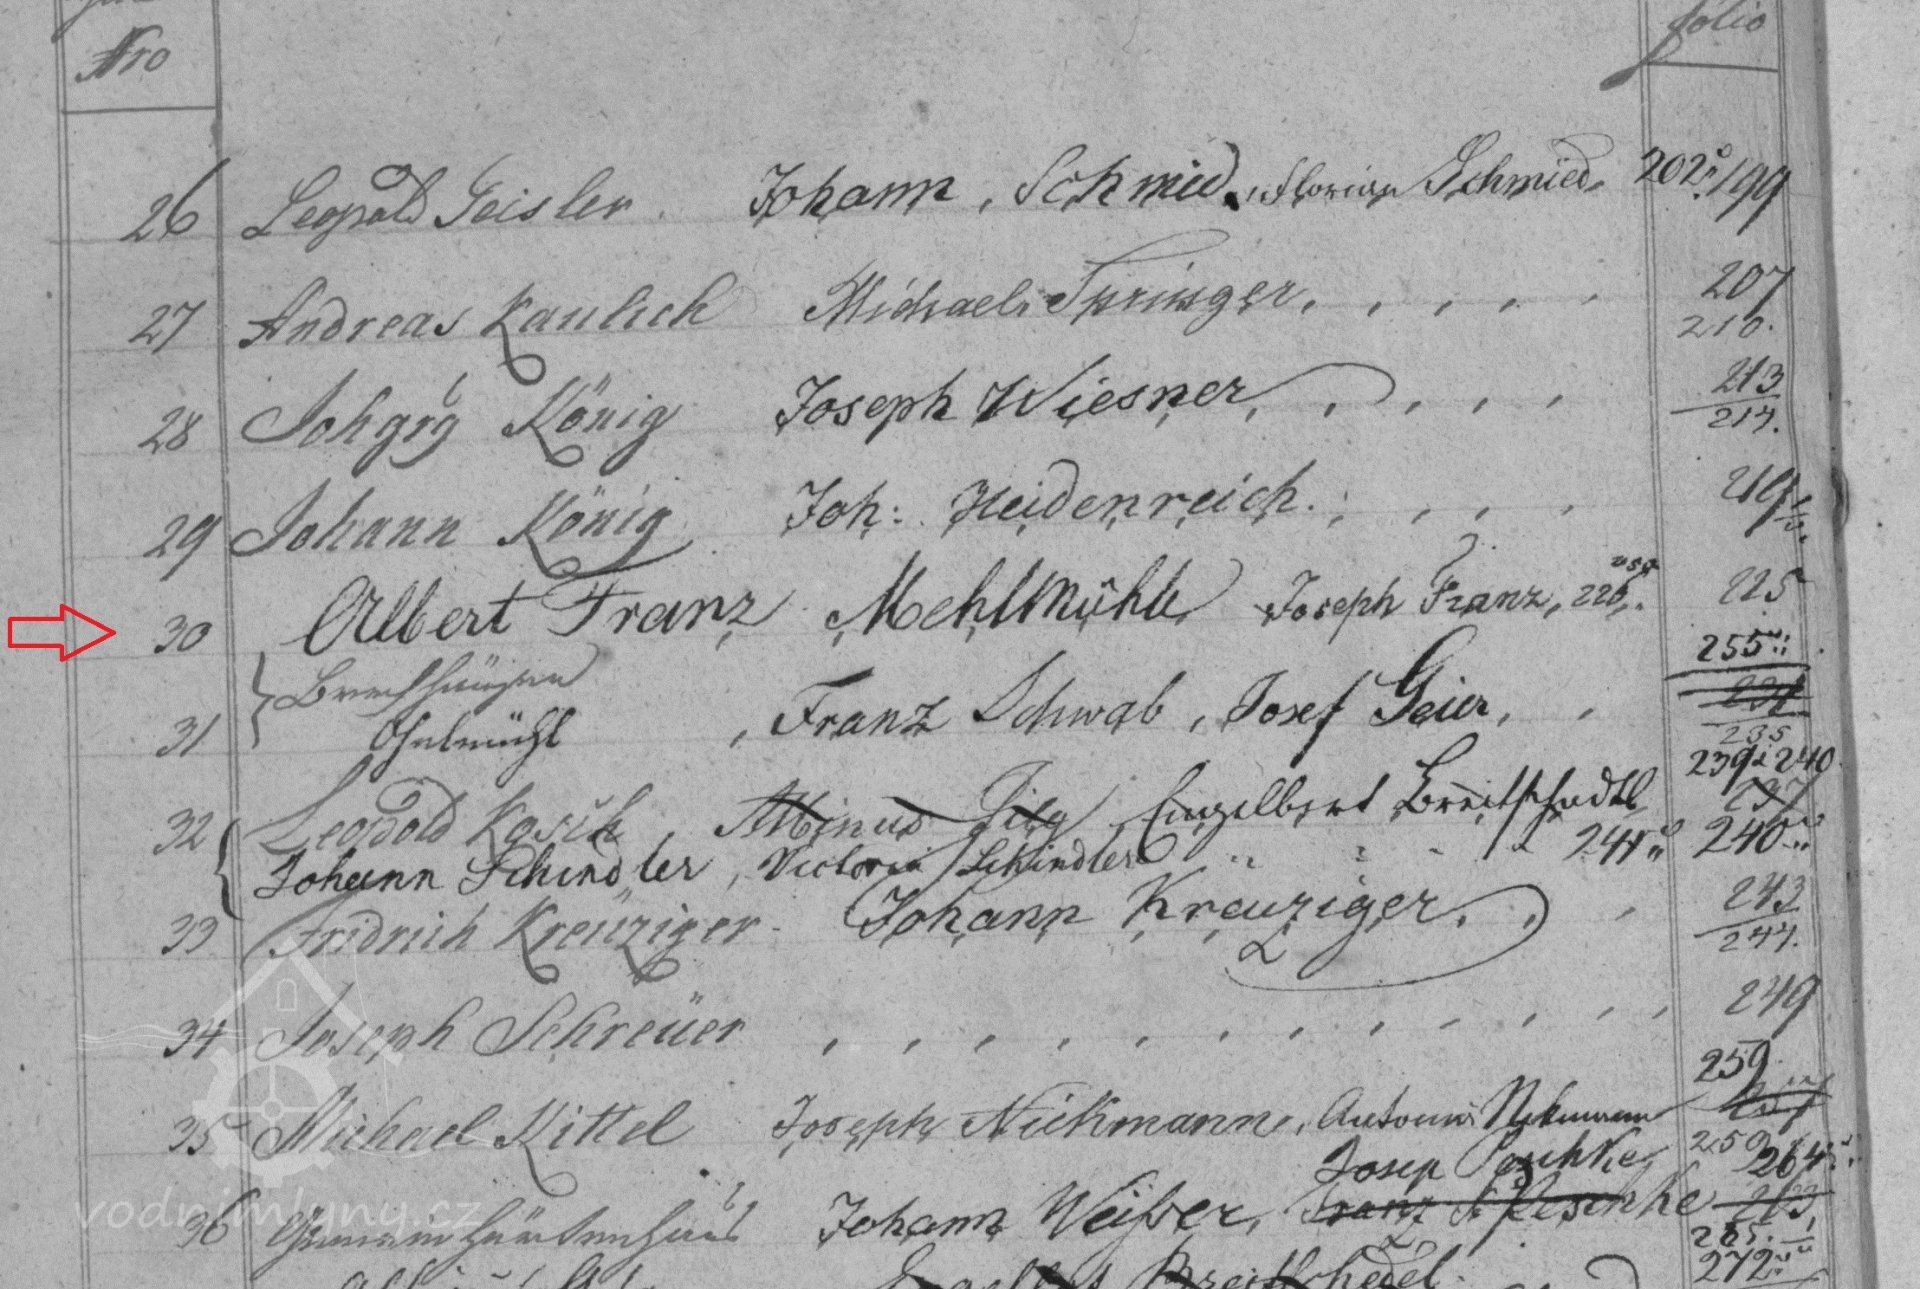 Nro folio
26 Leopold Geisler. Johann, Schmied, Florian Schmied, 202 199
27 Andreas Kaulich Michael Springer, , , , , 207
210.
28 Johgrg König Joseph Wiesner, , , , , 213
217.
29 Johann König Joh: Heidenreich. , , , , 219
30 Albert Franz Mehlmühle Joseph Franz, 226. 225
255
31 Franz Schwab, Josef Geier, , 235
239 i 240
32 Leopold Kosch, Albinus Engelbert Breitschädl 237
Johann Schindler, Victoria Schindler 241 240
33 Fridrich Kreüziger Johann Kreuziger, , , 243
244.
34 Joseph Schreüer , , , , , , , , , , , 249
259
35 Michael Kittel Joseph Nickmann, Antonia
250 264
Josep Peschke
36 Johann Weisser, Franz Peschke 263
265.
272
vodnimlyny.cz